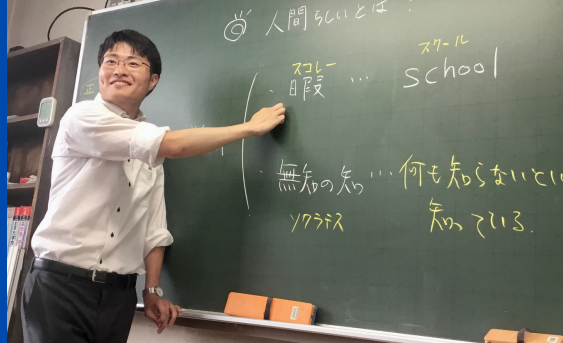 人間らしいとは?
スコレー スクール
・暇 … school
・無知の知 … 何も知らないとい
ソクラテス 知っている.